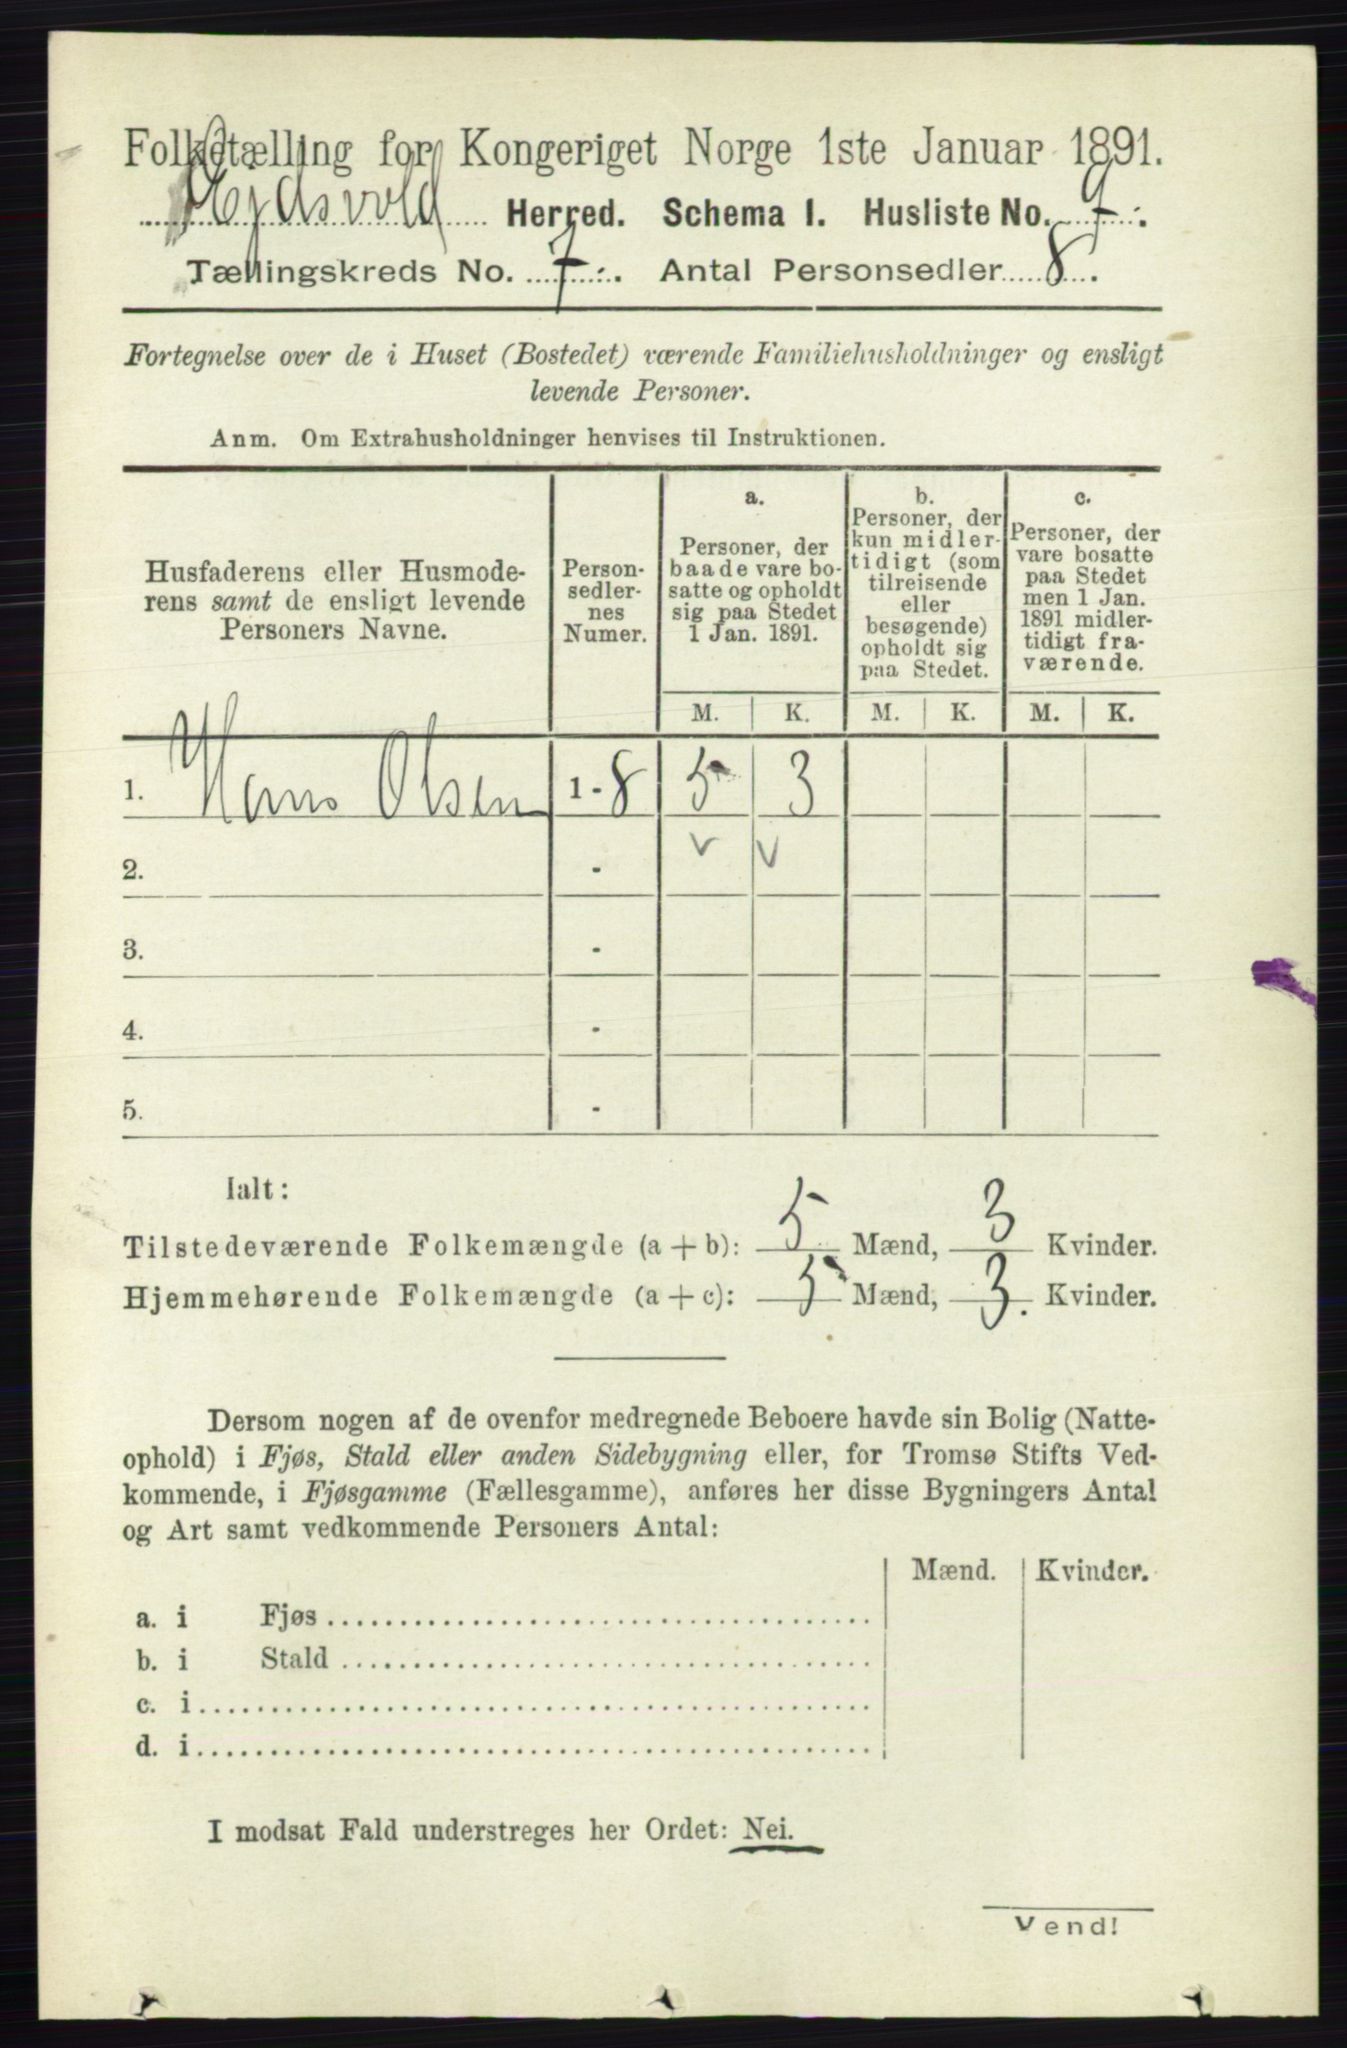 Folketælling for Kongeriget Norge 1ste Januar 1891.
Ejdsvold Herred. Schema I. Husliste No. 9.
Tællingskreds No. 7. Antal Personsedler 8.
Fortegnelse over de i Huset (Bostedet) værende Familiehusholdninger og ensligt
levende Personer.
Anm. Om Extrahusholdninger henvises til Instruktionen.
Husfaderens eller Husmode-
rens samt de ensligt levende
Personers Navne.
Person-
sedler-
nes
Numer.
a.
Personer, der
baade vare bo-
satte og opholdt
sig paa Stedet
1 Jan. 1891.
b.
Personer, der
kun midler-
tidigt (som
tilreisende
eller
besøgende)
opholdt sig
paa Stedet.
c.
Personer, der
vare bosatte
paa Stedet
men 1 Jan.
1891 midler-
tidigt fra-
værende.
M. K. M. K. M. K.
1. Hans Olsen 1-8 5 3
2. - v v
3. -
4. -
5. -
Ialt:
Tilstedeværende Folkemængde (a + b): 5 Mænd, 3 Kvinder.
Hjemmehørende Folkemængde (a + c): 5 Mænd, 3. Kvinder.
Dersom nogen af de ovenfor medregnede Beboere havde sin Bolig (Natte-
ophold) i Fjøs, Stald eller anden Sidebygning eller, for Tromsø Stifts Ved-
kommende, i Fjøsgamme (Fællesgamme), anføres her disse Bygningers Antal
og Art samt vedkommende Personers Antal:
Mænd. Kvinder.
a. i Fjøs
b. i Stald
c. i
d. i
I modsat Fald understreges her Ordet: Nei.
Vend!